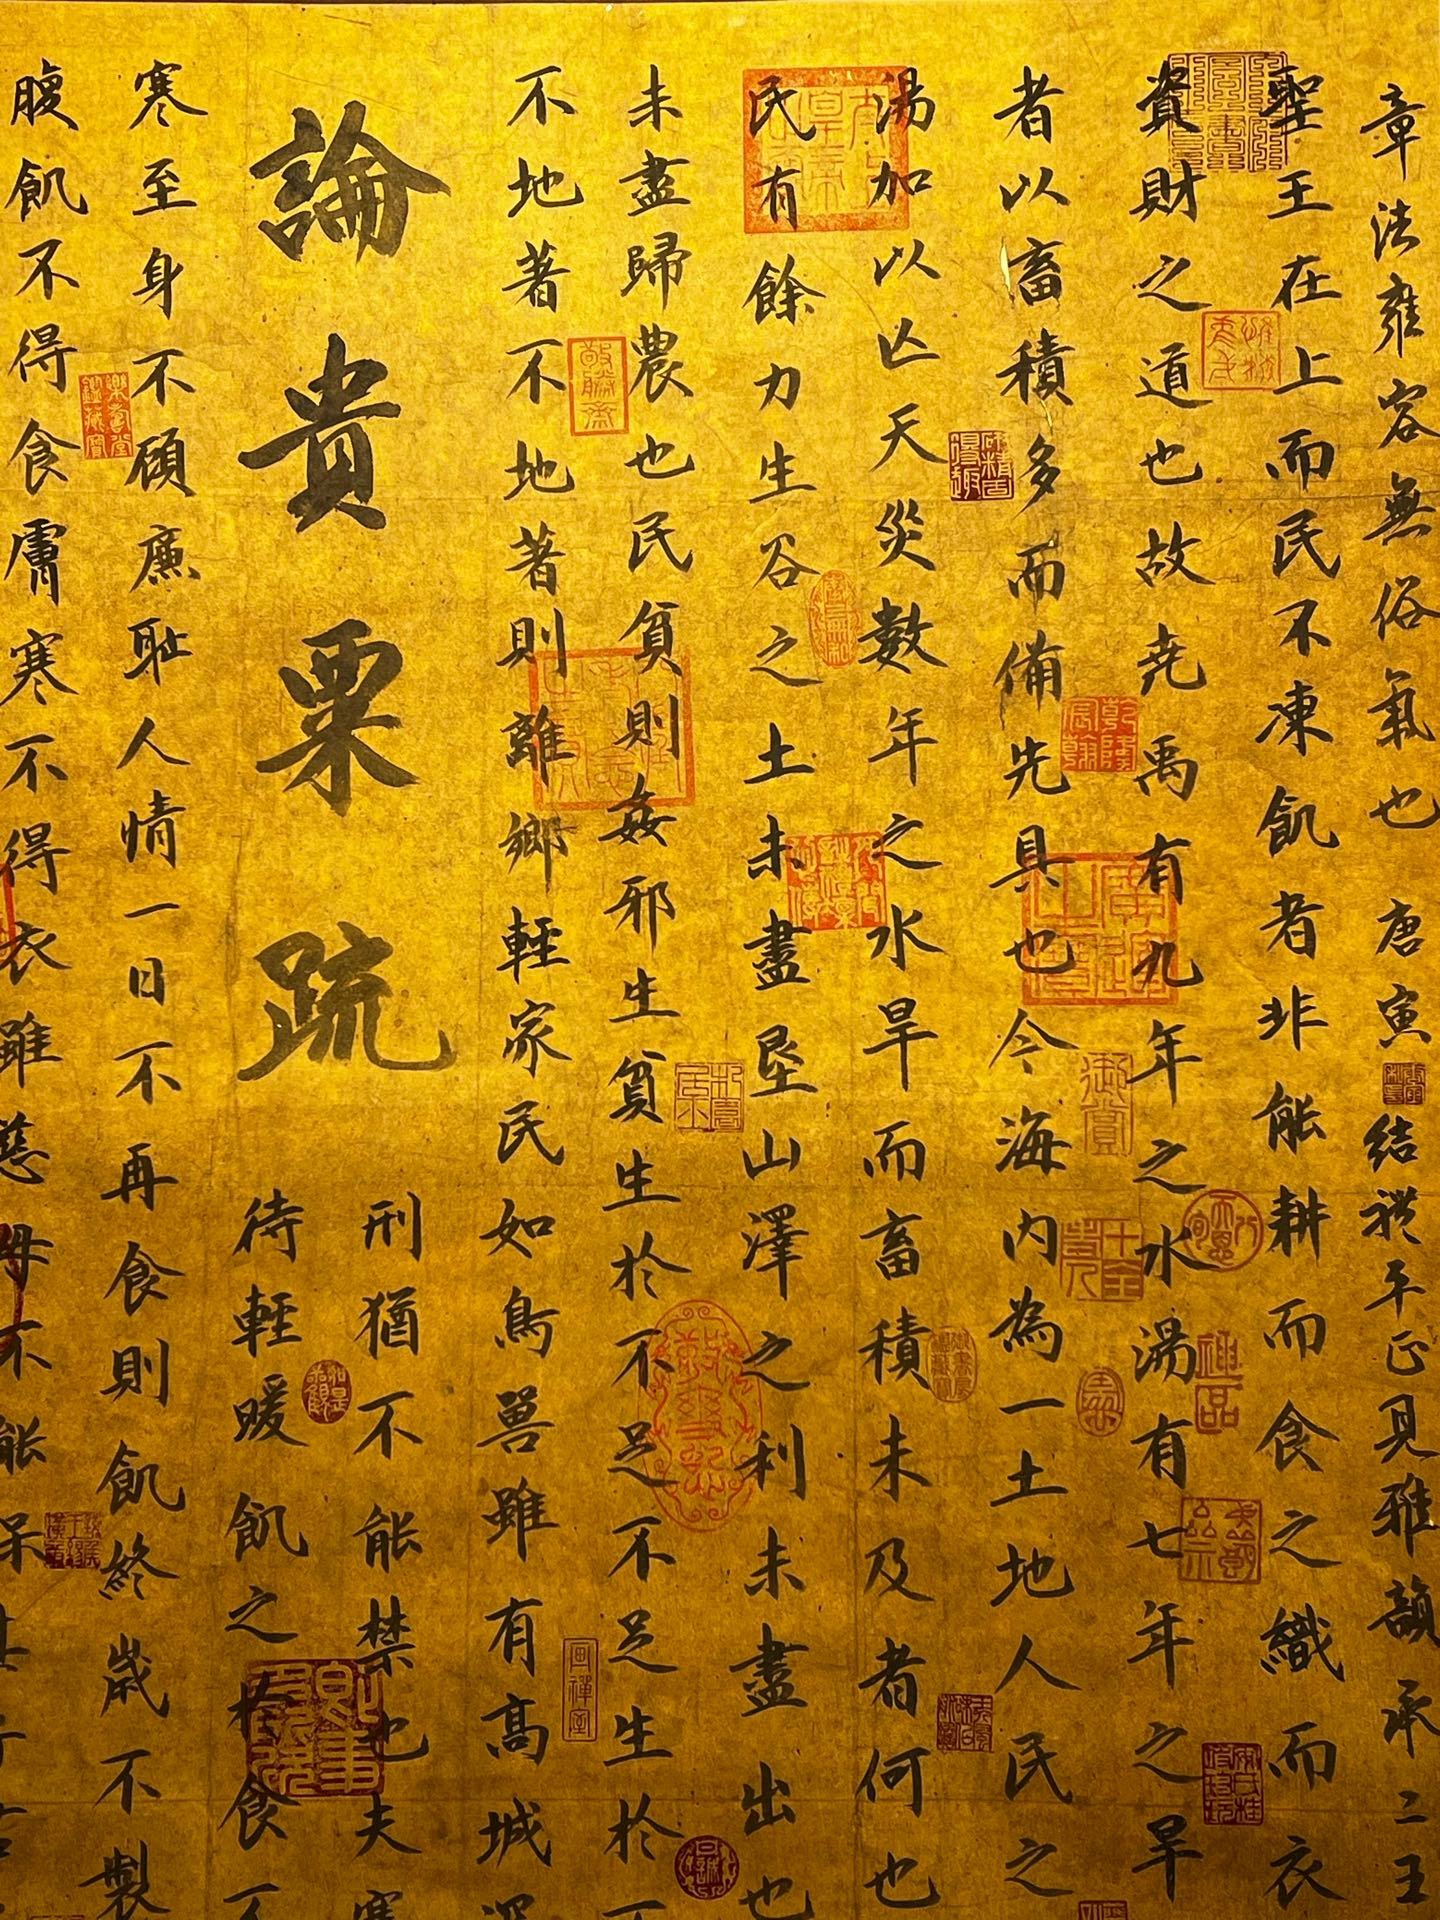 章法雍容無俗氣也 唐寅 結平正見雅韻承二王
聖王在上而民不凍飢者非能耕而食之織而衣
資財之道也故堯禹有九年之水湯有七年之旱
者以畜積多而備先具也今海內為一土地人民之
湯加以亡天災數年之水旱而畜積未及者何也
民有餘力生谷之土未盡墾山澤之利未盡出也
未盡歸農也民貧則姦邪生貧生於不足不足生於
不地著不地著則離鄉輕家民如鳥獸雖有高城深
論貴粟疏
刑猶不能禁也夫寒
待輕暖飢之於食不
寒至身不顧廉恥人情一日不再食則飢終歲不製
腹飢不得食膚寒不得衣雖慈母不能保其子
御賞
神品
乾隆宸翰
畫禪室